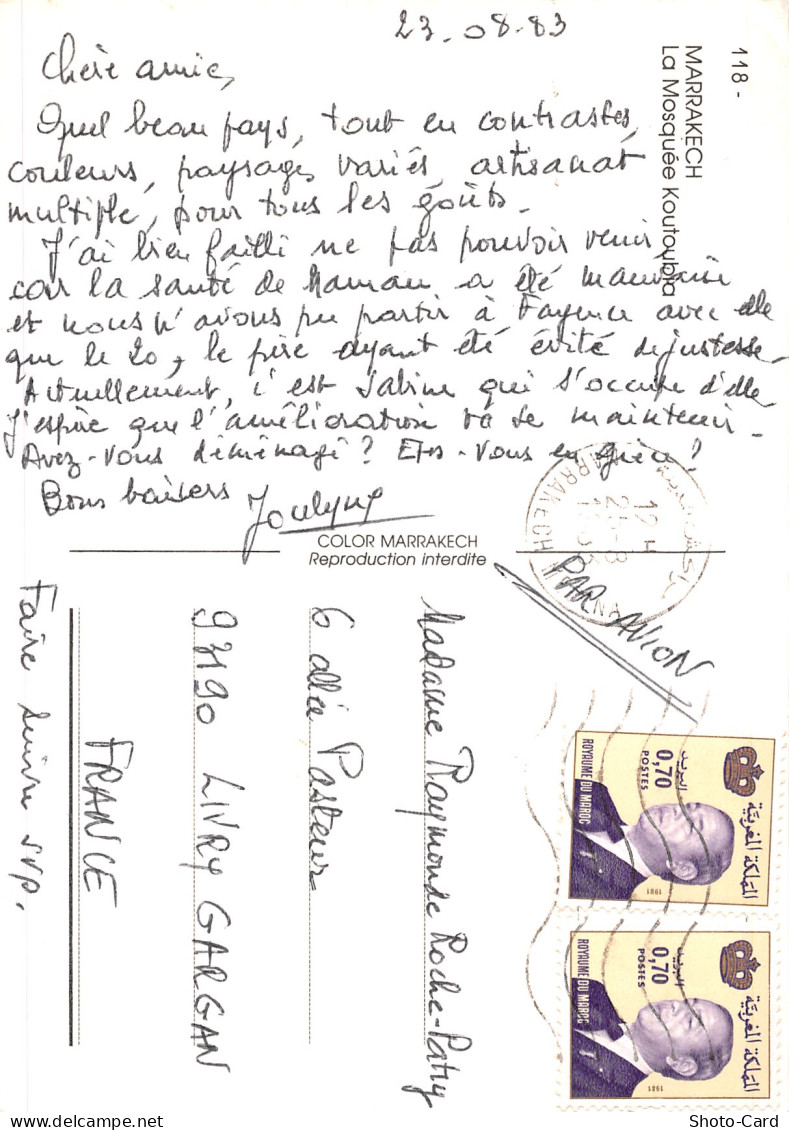 23-08-83
Chère amie,
Quel beau pays, tout en contrastes,
couleurs, paysages variés, artisanat
multiple, pour tous les goûts.
J'ai bien failli ne pas pouvoir venir
car la santé de Maman a été mauvaise
et nous n'avons pu partir à Fayence avec elle
que le 20, le pire ayant été évité de justesse.
Actuellement, c'est Sabine qui s'occupe d'elle
J'espère que l'amélioration va se maintenir.
Avez-vous déménagé? Etes-vous en ?
Bons baisers
118 -
MARRAKECH
La Mosquée Koutoubia
COLOR MARRAKECH
Reproduction interdite
PAR AVION
MARRAKECH
Madame Raymonde Roche-Patry
6 allée Pasteur
93190 LIVRY GARGAN
FRANCE
Faire suivre SVP.
المملكة المغربية
البريد
0,70
POSTES
ROYAUME DU MAROC
1981
المملكة المغربية
البريد
0,70
POSTES
ROYAUME DU MAROC
1981
Shoto-Card